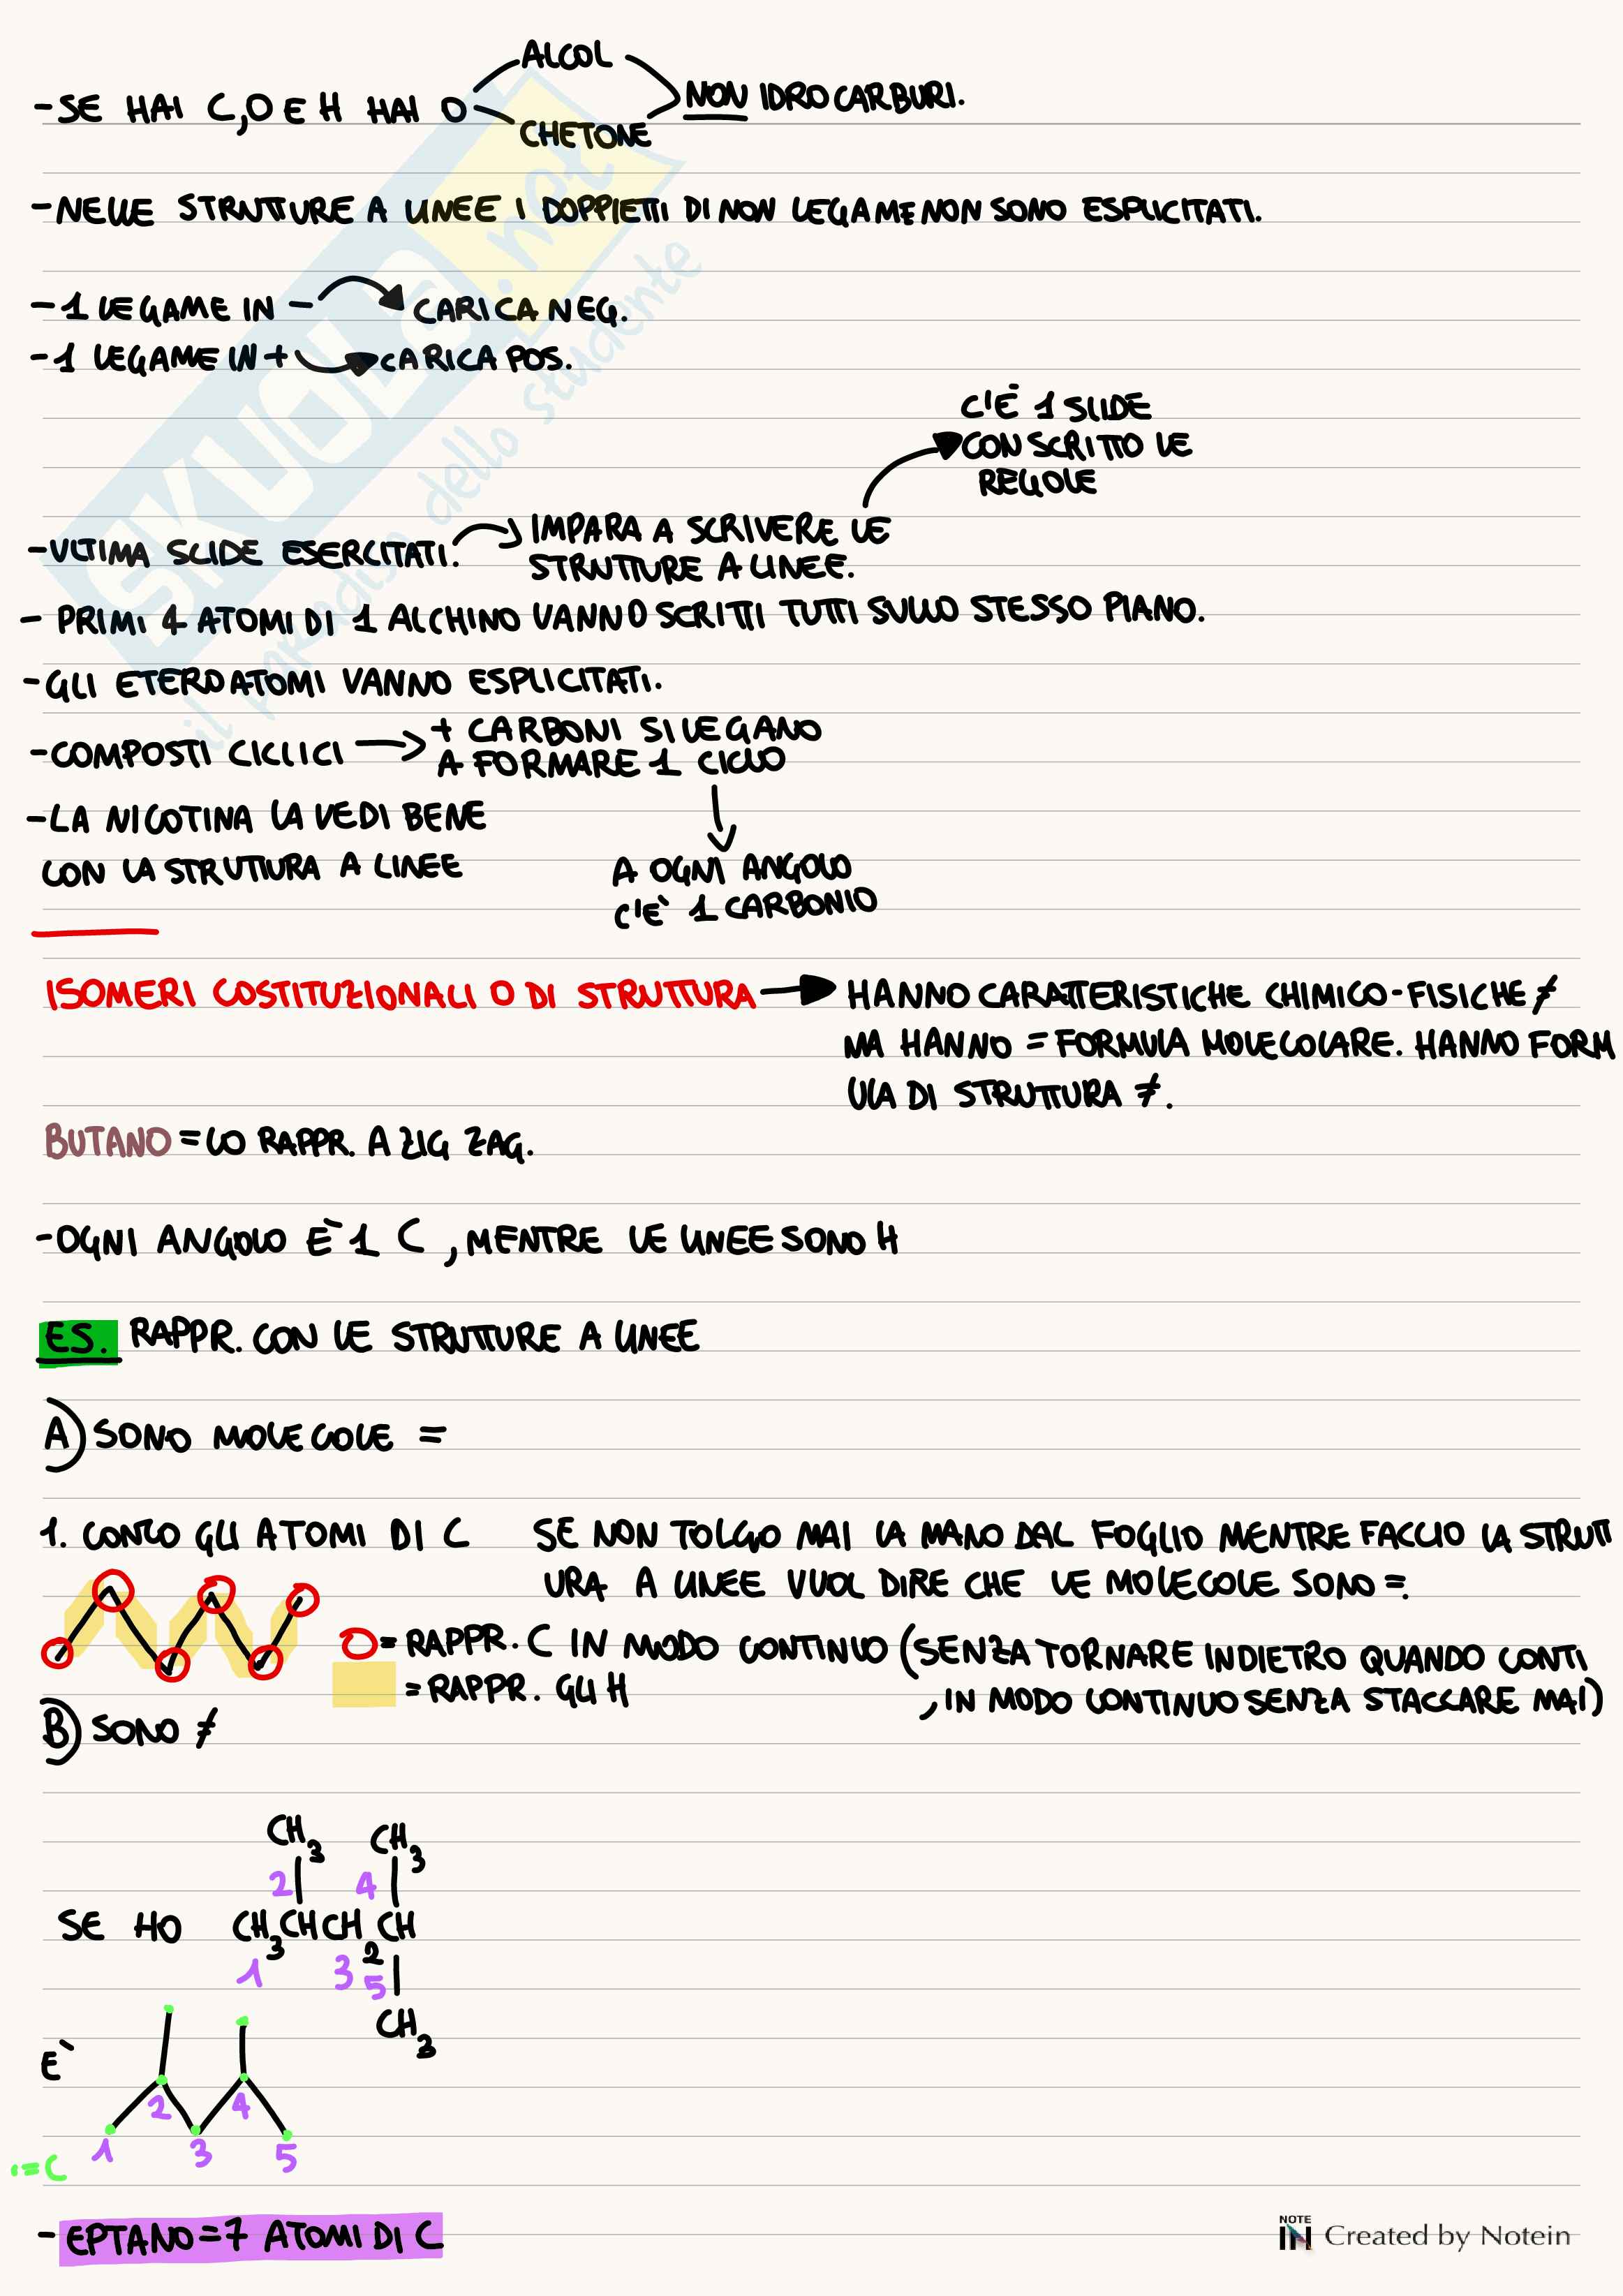 ALCOL
-SE HAI C,O E H HAI O NON IDROCARBURI.
CHETONE
-NELLE STRUTTURE A LINEE I DOPPIETTI DI NON LEGAME NON SONO ESPLICITATI.
-1 LEGAME IN - CARICA NEG.
-1 LEGAME IN + CARICA POS.
C'È 1 SLIDE
CON SCRITTO LE
REGOLE
-ULTIMA SLIDE ESERCITATI. IMPARA A SCRIVERE LE
STRUTTURE A LINEE.
- PRIMI 4 ATOMI DI 1 ALCHINO VANNO SCRITTI TUTTI SULLO STESSO PIANO.
-GLI ETEROATOMI VANNO ESPLICITATI.
-COMPOSTI CICLICI + CARBONI SI LEGANO
A FORMARE 1 CICLO
-LA NICOTINA LA VEDI BENE
CON LA STRUTTURA A LINEE
A OGNI ANGOLO
C'È 1 CARBONIO
ISOMERI COSTITUZIONALI O DI STRUTTURA HANNO CARATTERISTICHE CHIMICO-FISICHE ≠
MA HANNO = FORMULA MOLECOLARE. HANNO FORM
ULA DI STRUTTURA ≠.
BUTANO = LO RAPPR. A ZIG ZAG.
-OGNI ANGOLO È 1 C, MENTRE LE LINEE SONO H
ES. RAPPR. CON LE STRUTTURE A LINEE
A) SONO MOLECOLE =
1. CONTO GLI ATOMI DI C SE NON TOLGO MAI LA MANO DAL FOGLIO MENTRE FACCIO LA STRUTT
URA A LINEE VUOL DIRE CHE LE MOLECOLE SONO =.
O = RAPPR. C IN MODO CONTINUO (SENZA TORNARE INDIETRO QUANDO CONTI
, IN MODO CONTINUO SENZA STACCARE MAI)
= RAPPR. GLI H
B) SONO ≠
CH3 CH3
2 4
SE HO CH3CHCH2CH
1 3 5
CH3
È
2 4
1 3 5
•=C
- EPTANO = 7 ATOMI DI C
SKUOLA.net
il paradiso dello studente
NOTE
IN Created by Notein